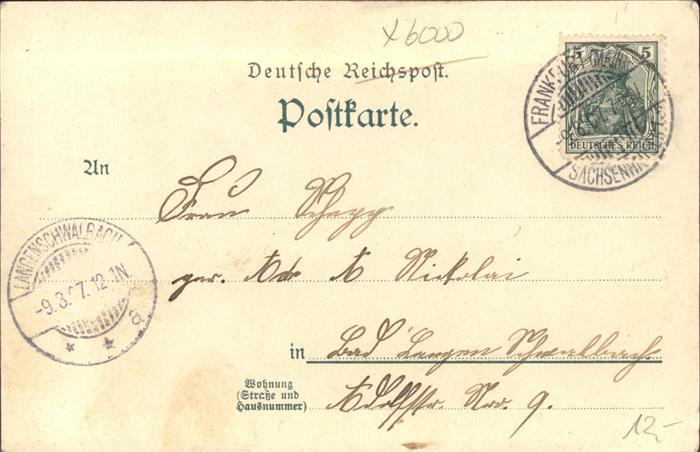 x 6000
Deutsche Reichspost.
Postkarte.
5 5
DEUTSCHES REICH
FRANKFURT (MAIN)
SACHSENH
An
Frau Schepp
per. Adr A Nickolai
LANGENSCHWALBACH
-9.3. 7.12-1N.
in Bad Langen Schwalbach
Wohnung
(Straße und
Hausnummer)
Adolfstr. Nro. 9.
12,-